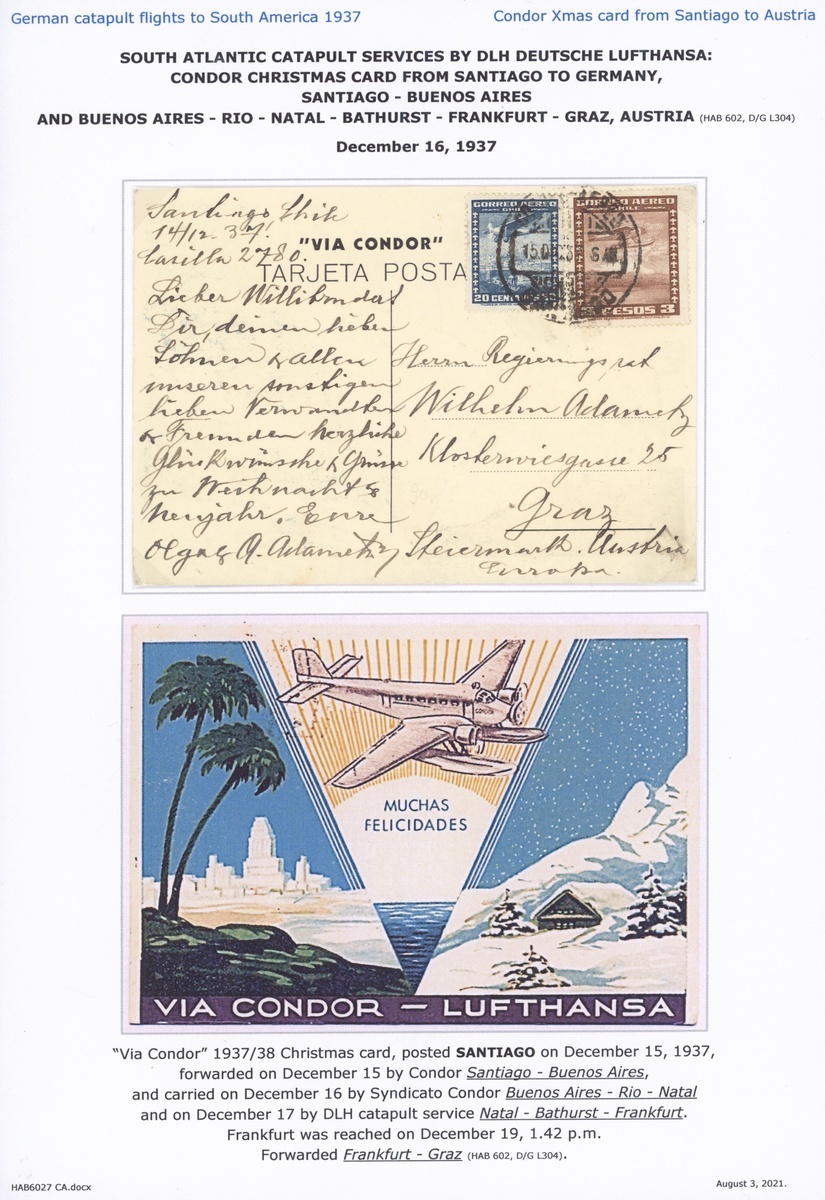 German catapult flights to South America 1937
Condor Xmas card from Santiago to Austria
SOUTH ATLANTIC CATAPULT SERVICES BY DLH DEUTSCHE LUFTHANSA:
CONDOR CHRISTMAS CARD FROM SANTIAGO TO GERMANY,
SANTIAGO - BUENOS AIRES
AND BUENOS AIRES - RIO - NATAL - BATHURST - FRANKFURT - GRAZ, AUSTRIA (HAB 602, D/G L304)
December 16, 1937
Santiago Chile
14/12. 37.
Casilla 2780.
"VIA CONDOR"
TARJETA POSTA
CORREO AEREO
CHILE
20 CENT
CORREO AEREO
CHILE
PESOS 3
15 D
Lieber Willi und
Dir, deinen lieben
Söhnen & allen
unseren sonstigen
lieben Verwandten
& Freunden herzliche
Glückwünsche & Grüsse
zu Weihnacht &
Neujahr. Eure
Olga & A. Adametz
Herrn Regierungsrat
Wilhelm Adametz
Klosterwiesgasse 25
Graz
Steiermark. Austria
Europa.
CONDOR
MUCHAS
FELICIDADES
VIA CONDOR — LUFTHANSA
“Via Condor” 1937/38 Christmas card, posted SANTIAGO on December 15, 1937,
forwarded on December 15 by Condor Santiago - Buenos Aires,
and carried on December 16 by Syndicato Condor Buenos Aires - Rio - Natal
and on December 17 by DLH catapult service Natal - Bathurst - Frankfurt.
Frankfurt was reached on December 19, 1.42 p.m.
Forwarded Frankfurt - Graz (HAB 602, D/G L304).
HAB6027 CA.docx
August 3, 2021.